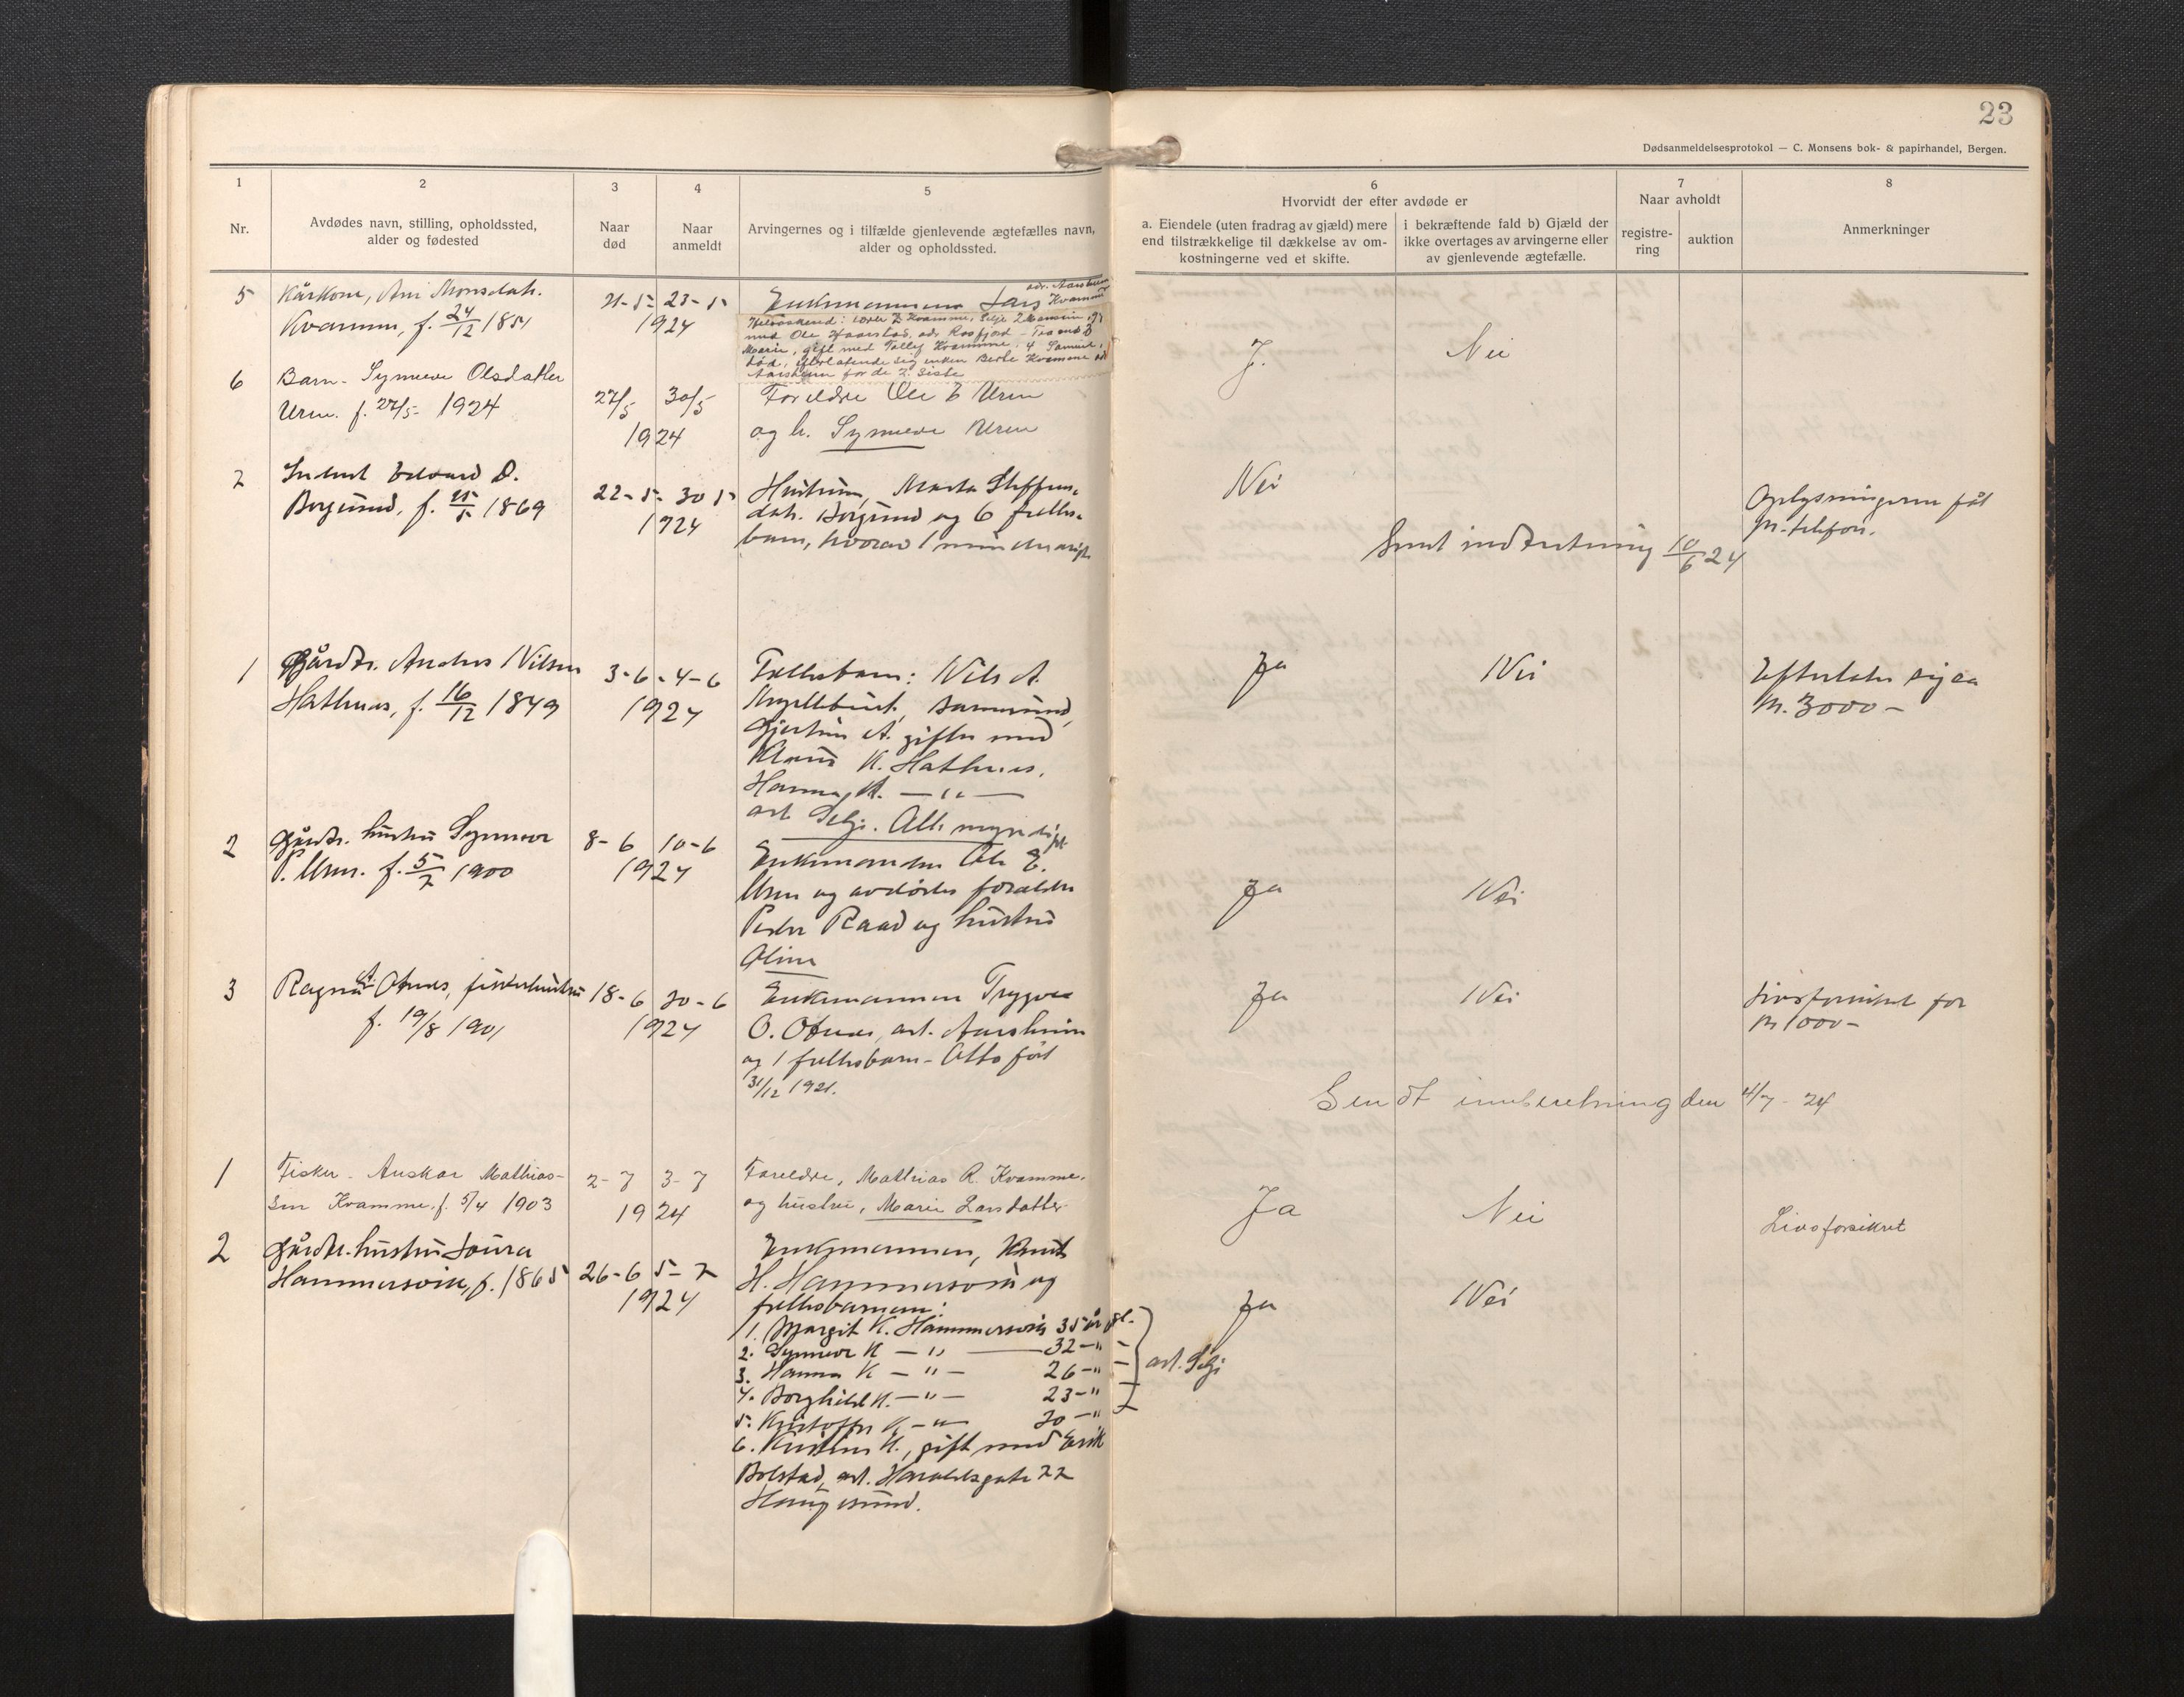 23
Dødsanmeldelsesprotokol — C. Monsens bok- & papirhandel, Bergen.
1
Nr.
2
Avdødes navn, stilling, opholdssted,
alder og fødested
3
Naar
død
4
Naar
anmeldt
5
Arvingernes og i tilfælde gjenlevende ægtefælles navn,
alder og opholdssted.
6
Hvorvidt der efter avdøde er
a. Eiendele (uten fradrag av gjæld) mere
end tilstrækkelige til dækkelse av om-
kostningerne ved et skifte.
i bekræftende fald b) Gjæld der
ikke overtages av arvingerne eller
av gjenlevende ægtefælle.
7
Naar avholdt
registre-
ring
auktion
8
Anmerkninger
5
Kårkone, Ani Monsdatr.
Kvamme, f. 24/12 1851
21-5- 23-5
1924
Enkemannen Lars Kvamme
Marie, gift med Tollef Kvamme. 4
død, efterlatende sig enken Berte Kvamme
Aarsheim for de 2 siste
J.
Nei
6
Barn - Synneve Olsdatter
Uren. f. 27/5- 1924
27/5 30/5
1924
Foreldre Ole E Uren
og h. Synneve Uren
7
Edvard D.
Borgund, f. 25/5 1869
22-5- 30 5
1924
Hustrun, Marta Steffens-
datr. Borgund og 6 fælles-
barn, hvorav 1 mindreårigt
Nei
Oplysningerne fåt
pr. telefon.
Sent indberetning 10/6 24
1
Gårdbr. Anders Nilsen
Hatlenes, f. 16/12 1849
3-6- 4-6
1924
Fællesbarn: Nils A.
gift med
Klaus K. Hatlenes.
Hanna A. — " —
adr. Selje. Alle myndige
Ja
Nei
Efterlater sig ca
kr. 3000 –
2
Gårdbr. hustru Synneve
P. Uren. f. 5/7 1900
8-6 10-6
1924
Enkemanden Ole E.
Uren og avdødes forældre
Peder Raad og hustru
Oline
Ja
Nei
3
Ragna A. Otnes, fiskerhustru
f. 19/8 1901
18-6 20-6
1924
Enkemannen Trygve
O. Otnes, adr. Aarsheim
og 1 fellesbarn - Otto født
31/12 1921.
Ja
Nei
Livsforsikret for
kr 1000 –
Sendt innberetning den 4/7 - 24
1
Fisker - Anskar Mathias-
sen Kvamme, f. 5/4 1903
2-7 3-7
1924
Foreldre, Mathias R. Kvamme.
og hustru, Marie Larsdatter
Ja
Nei
Livsforsikret
2
Gårdbr. hustru Laura
Hammersvik, f. 1865
26-6 5-7
1924
Enkemannen, Knut
H. Hammersvik og
fellesbarnene:
1. Margit K. Hammersvik 35 år gl.
2. Synneve K — " — 32 — " –
3. Hanna K — " — 26 — " –
4. Borghild K. — " — 23 — "
5. Kristoffer K — " — 20 — "
adr. Selje
6. Kristine K., gift med Erik
Bolstad, adr. Haraldsgate 77
Haugesund.